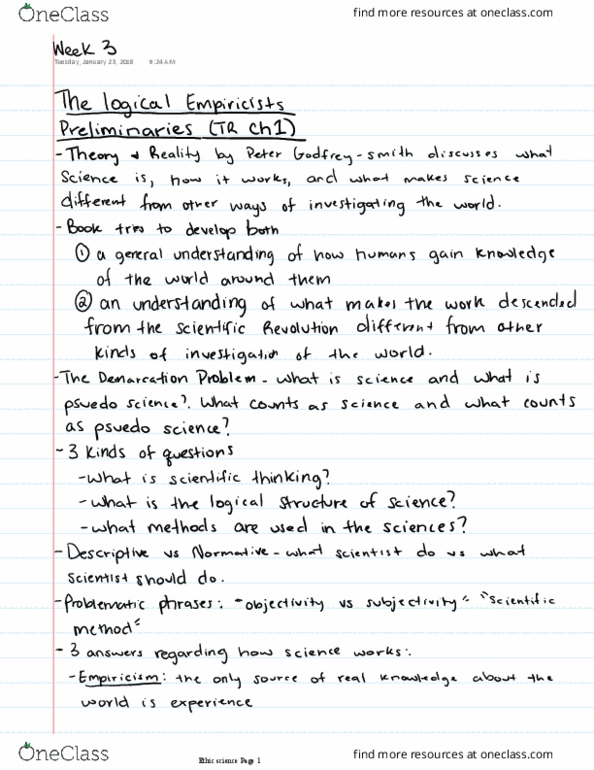 OneClass
find more resources at oneclass.com
Week 3
Tuesday, January 23, 2018 9:24 AM
The Logical Empiricists
Preliminaries (TR Ch1)
- Theory & Reality by Peter Godfrey-Smith discusses what
Science is, how it works, and what makes science
different from other ways of investigating the world.
- Book tries to develop both
① a general understanding of how humans gain knowledge
of the world around them
② an understanding of what makes the work descended
from the scientific Revolution different from other
kinds of investigation of the world.
- The Demarcation Problem - what is science and what is
psuedo science?. What counts as science and what counts
as psuedo science?
- 3 kinds of questions
- what is scientific thinking?
- what is the logical structure of science?
- what methods are used in the sciences?
- Descriptive vs Normative - what scientist do vs what
scientist should do.
- Problematic phrases: "objectivity vs subjectivity" "scientific
method"
- 3 answers regarding how science works:
- Empiricism: the only source of real knowledge about the
world is experience
OneClass
Ethic science Page 1
find more resources at oneclass.com